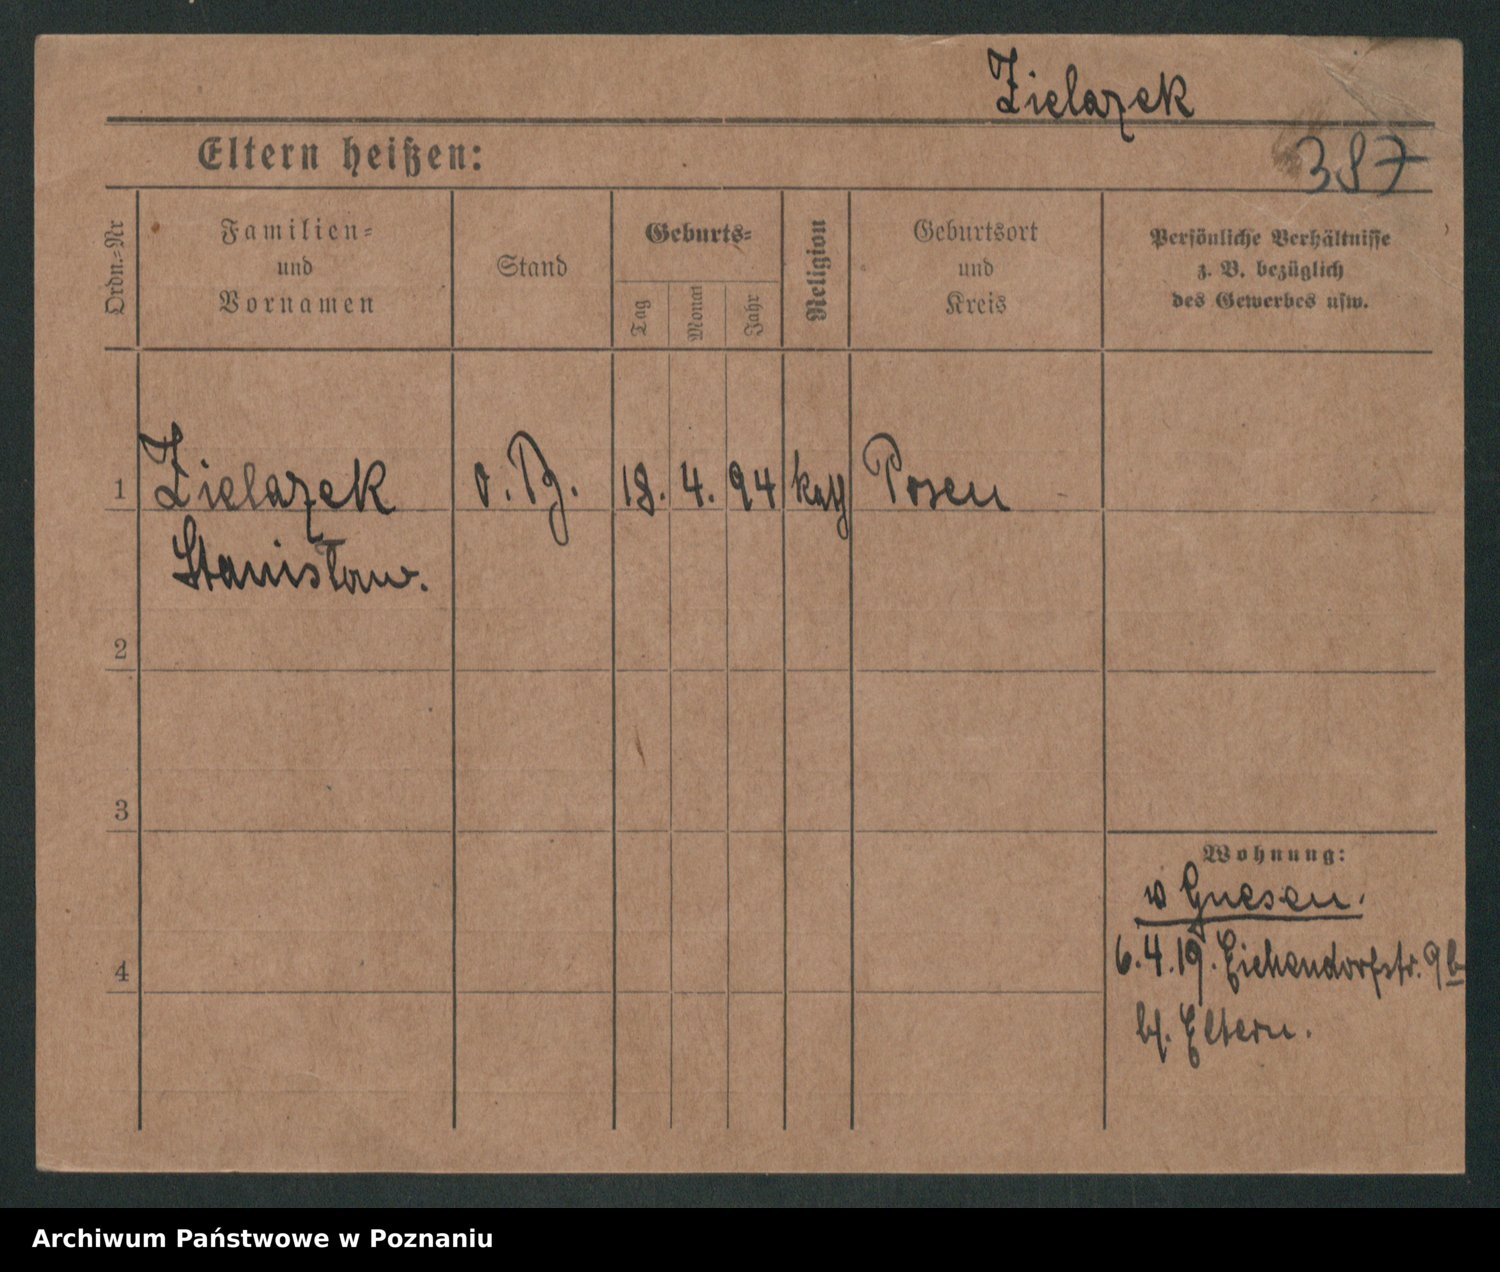 Zielazek
Eltern heißen:
387
Ordn.-Nr
Familien-
und
Vornamen
Stand
Geburts-
Tag
Monat
Jahr
Religion
Geburtsort
und
Kreis
Persönliche Verhältnisse
z. B. bezüglich
des Gewerbes usw.
1 Zielazek 18. 4. 94 kath Posen
Stanisław.
2
3
Wohnung:
Gnesen.
6.4.19. Eichendorfstr. 9b
4
bf. Eltern.
Archiwum Państwowe w Poznaniu